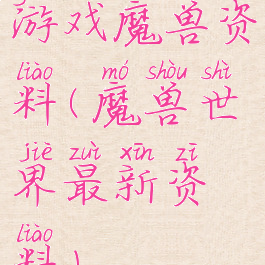 游戏魔兽资
liào mó shòu shì
料(魔兽世
jiè zuì xīn zī
界最新资
liào
料)